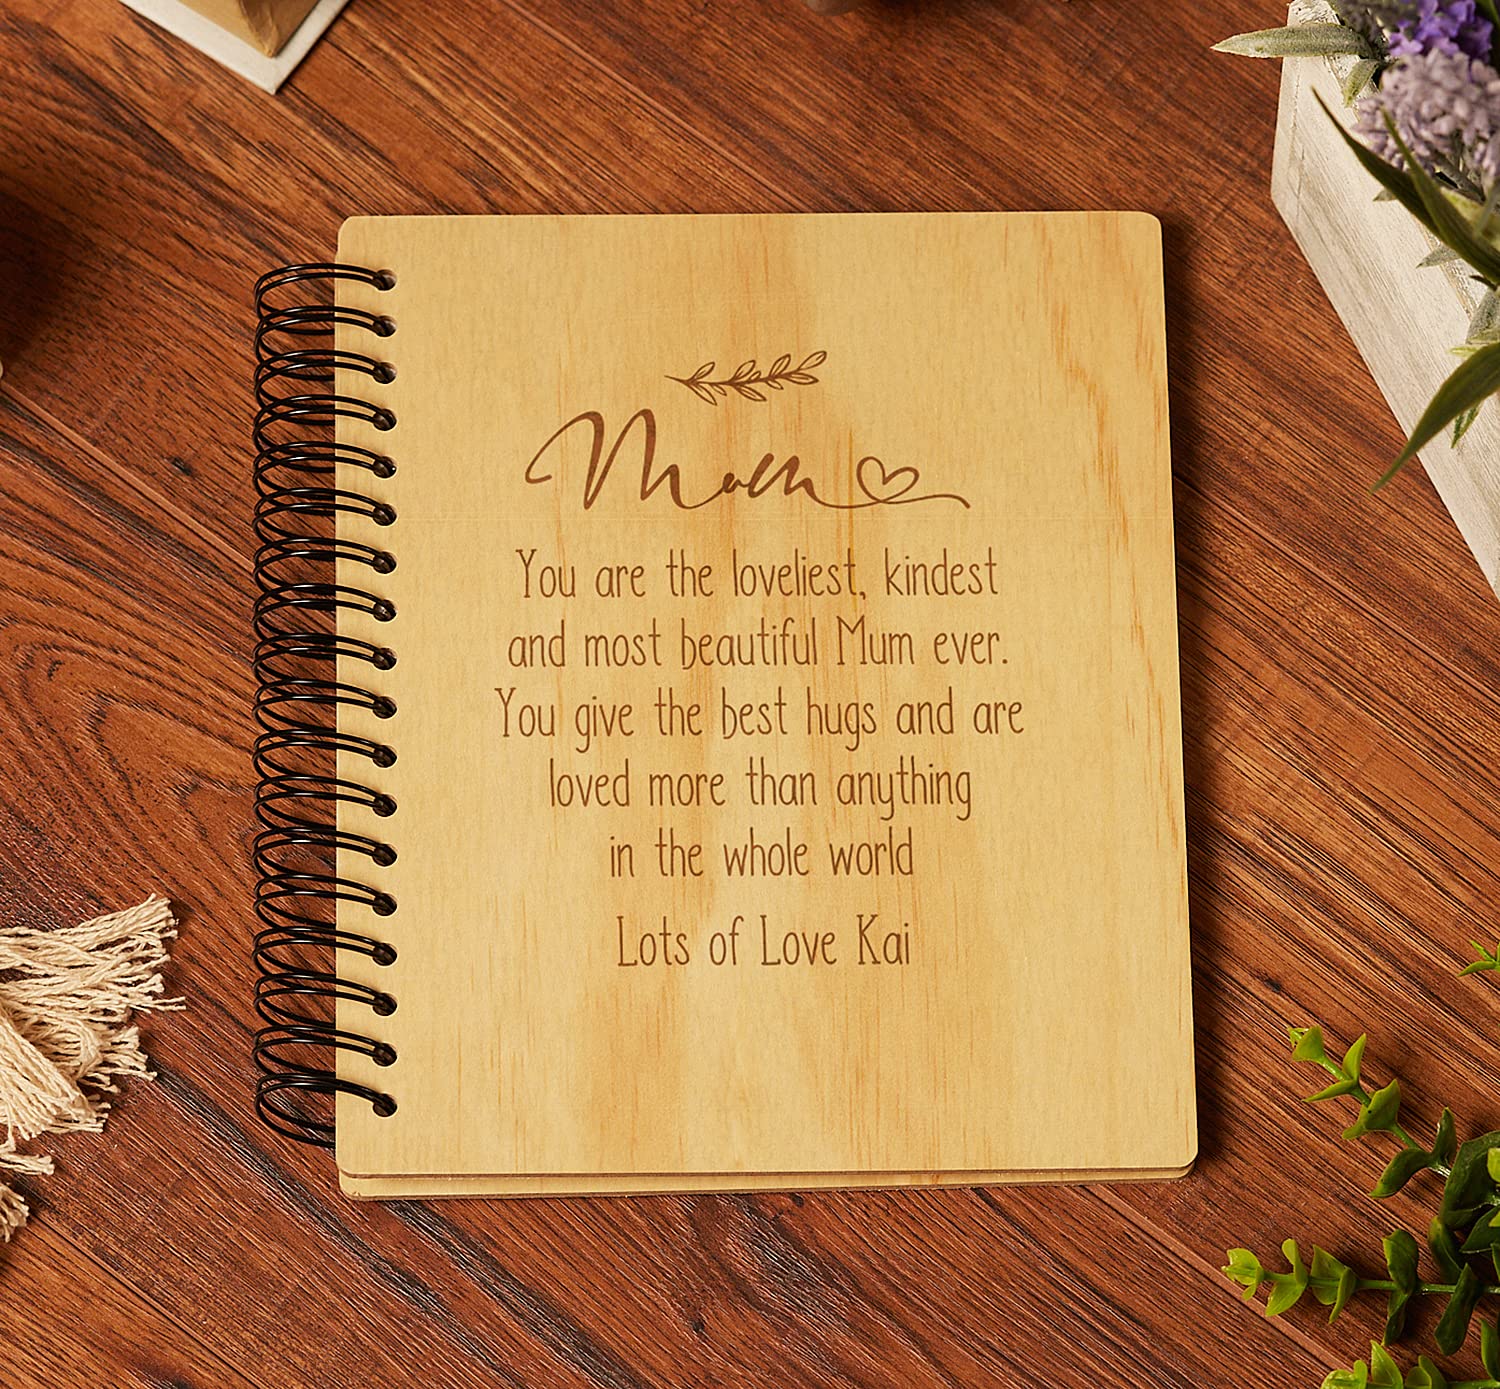 Mum
You are the loveliest, kindest
and most beautiful Mum ever.
You give the best hugs and are
loved more than anything
in the whole world
Lots of Love Kai